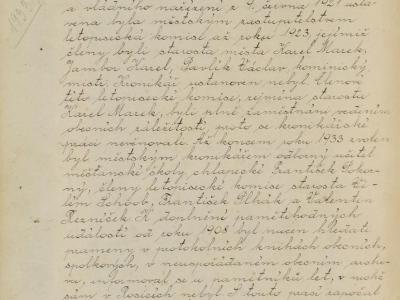 1933.
a vládního nařízení z 9. června 1921 usta-
vena byla městským zastupitelstvem
letopisecká komise až roku 1923, jejímiž
členy byli starosta města Karel Marek,
Jambor Karel, Pavlík Václav, kominický
mistr. Kronikář ustanoven nebyl. Členové
této letopisecké komise, zejména starosta
Karel Marek, byli plně zaměstnáni vedením
obecních záležitostí, proto se kronikářské
práci nevěnovali. Až koncem roku 1933 zvolen
byl městským kronikářem odborný učitel
měšťanské školy chlapecké František Soko-
ný, členy letopisecké komise starosta Vi-
lém Schoob, František Plhák a Valentin
Řezníček. K doplnění pamětihodných
událostí od roku 1908 byl nucen hledati
prameny v protokolních knihách obecních,
spolkových, v neuspořádaném obecním archi-
vu, informoval se u pamětníků let, v nichž
sám v Rosicích nebyl. S touto prací započal